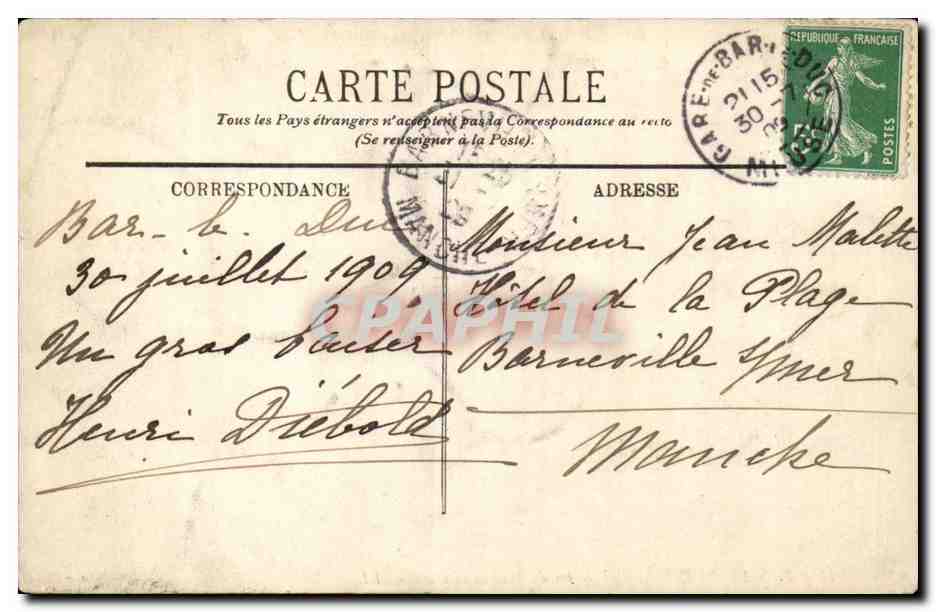 CARTE POSTALE
Tous les Pays étrangers n'acceptent pas la Correspondance au recto
(Se renseigner à la Poste).
CORRESPONDANCE
Bar-le-Duc
30 juillet 1909
Un gros baiser
Henri Diébold
ADRESSE
Monsieur Jean Malette
Hôtel de la Plage
Barneville s/mer
Manche
GARE-DE-BAR-LE-DUC
21 15
30 -7
09
MEUSE
REPUBLIQUE FRANÇAISE
POSTES
MANCHE
CPAPHIL